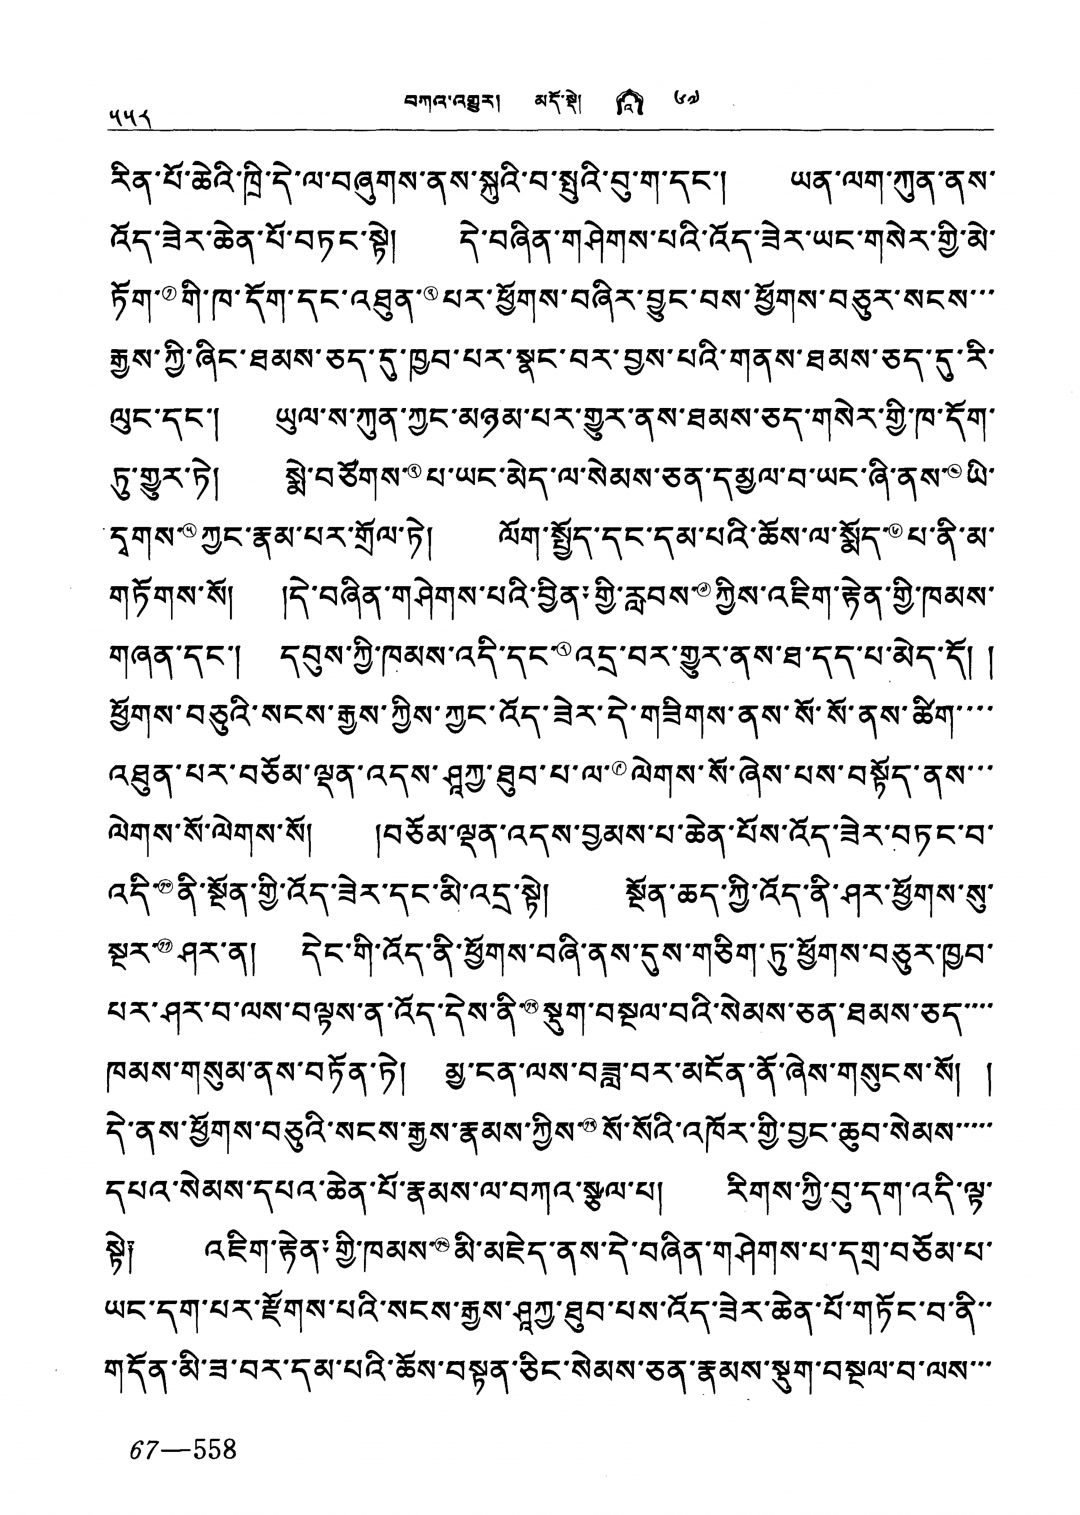 ༥༥༨ བཀའ་འགྱུར། མདོ་སྡེ། ༦༧
རིན་པོ་ཆེའི་ཁྲི་དེ་ལ་བཞུགས་ནས་སྐུའི་བ་སྤུའི་བུ་ག་དང་། ཡན་ལག་ཀུན་ནས་
འོད་ཟེར་ཆེན་པོ་བཏང་སྟེ། དེ་བཞིན་གཤེགས་པའི་འོད་ཟེར་ཡང་གསེར་གྱི་མེ་
ཏོག་①གི་ཁ་དོག་དང་འཐུན་②པར་ཕྱོགས་བཞིར་བྱུང་བས་ཕྱོགས་བཅུར་སངས་་་
རྒྱས་ཀྱི་ཞིང་ཐམས་ཅད་དུ་ཁྱབ་པར་སྣང་བར་བྱས་པའི་གནས་ཐམས་ཅད་དུ་རི་
ལུང་དང་། ཡུལ་ས་ཀུན་ཀྱང་མཉམ་པར་གྱུར་ནས་ཐམས་ཅད་གསེར་གྱི་ཁ་དོག་
ཏུ་གྱུར་ཏེ། སྨེ་བཙོགས་③པ་ཡང་མེད་ལ་སེམས་ཅན་དམྱལ་བ་ཡང་ཞི་ནས་④ཡི་
དྭགས་⑤ཀྱང་རྣམ་པར་གྲོལ་ཏེ། ལོག་སྤྱོད་དང་དམ་པའི་ཆོས་ལ་སྨོད་⑥པ་ནི་མ་
གཏོགས་སོ། །དེ་བཞིན་གཤེགས་པའི་བྱིན་གྱི་རླབས་⑦ཀྱིས་འཇིག་རྟེན་གྱི་ཁམས་
གཞན་དང་། དབུས་ཀྱི་ཁམས་འདི་དང་⑧འདྲ་བར་གྱུར་ནས་ཐ་དད་པ་མེད་དོ། །
ཕྱོགས་བཅུའི་སངས་རྒྱས་ཀྱིས་ཀྱང་འོད་ཟེར་དེ་གཟིགས་ནས་སོ་སོ་ནས་ཚིག་་་་
འཐུན་པར་བཅོམ་ལྡན་འདས་ཤཱཀྱ་ཐུབ་པ་ལ་⑨ལེགས་སོ་ཞེས་པས་བསྟོད་ནས་་་
ལེགས་སོ་ལེགས་སོ། །བཅོམ་ལྡན་འདས་བྱམས་པ་ཆེན་པོས་འོད་ཟེར་བཏང་བ་
འདི་⑩ནི་སྔོན་གྱི་འོད་ཟེར་དང་མི་འདྲ་སྟེ། སྔོན་ཆད་ཀྱི་འོད་ནི་ཤར་ཕྱོགས་སུ་
སྔར་⑪ཤར་ན། དེང་གི་འོད་ནི་ཕྱོགས་བཞི་ནས་དུས་གཅིག་ཏུ་ཕྱོགས་བཅུར་ཁྱབ་
པར་ཤར་བ་ལས་བལྟས་ན་འོད་དེས་ནི་⑫སྡུག་བསྔལ་བའི་སེམས་ཅན་ཐམས་ཅད་་་་
ཁམས་གསུམ་ནས་བཏོན་ཏེ། མྱ་ངན་ལས་བཟླ་བར་མངོན་ནོ་ཞེས་གསུངས་སོ། །
དེ་ནས་ཕྱོགས་བཅུའི་སངས་རྒྱས་རྣམས་ཀྱིས་⑬སོ་སོའི་འཁོར་གྱི་བྱང་ཆུབ་སེམས་་་་་
དཔའ་སེམས་དཔའ་ཆེན་པོ་རྣམས་ལ་བཀའ་སྩལ་པ། རིགས་ཀྱི་བུ་དག་འདི་ལྟ་
སྟེ། འཇིག་རྟེན་གྱི་ཁམས་⑭མི་མཇེད་ནས་དེ་བཞིན་གཤེགས་པ་དགྲ་བཅོམ་པ་
ཡང་དག་པར་རྫོགས་པའི་སངས་རྒྱས་ཤཱཀྱ་ཐུབ་པས་འོད་ཟེར་ཆེན་པོ་གཏོང་བ་ནི་་
གདོན་མི་ཟ་བར་དམ་པའི་ཆོས་བསྟན་ཅིང་སེམས་ཅན་རྣམས་སྡུག་བསྔལ་བ་ལས་་་
67—558